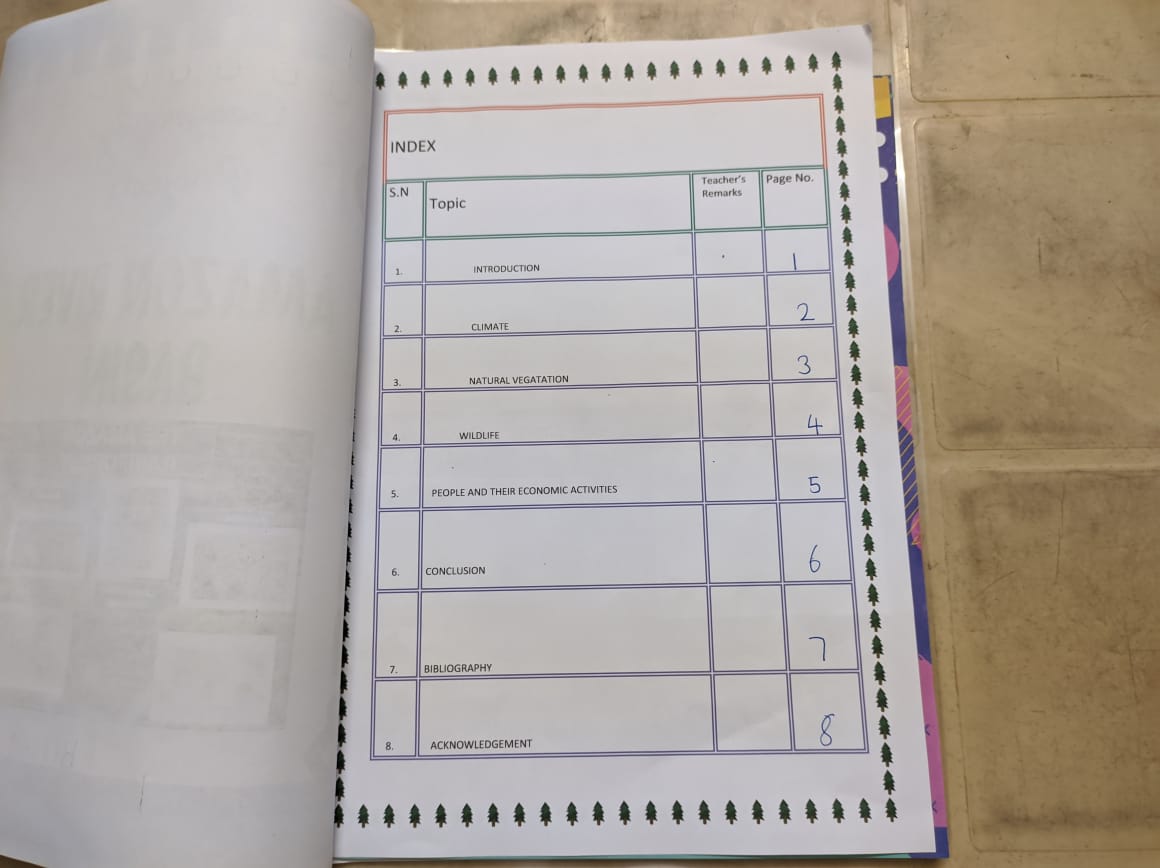 INDEX
S.N Topic Teacher's Remarks Page No.
1. INTRODUCTION 1
2. CLIMATE 2
3. NATURAL VEGATATION 3
4. WILDLIFE 4
5. PEOPLE AND THEIR ECONOMIC ACTIVITIES 5
6. CONCLUSION 6
7. BIBLIOGRAPHY 7
8. ACKNOWLEDGEMENT 8